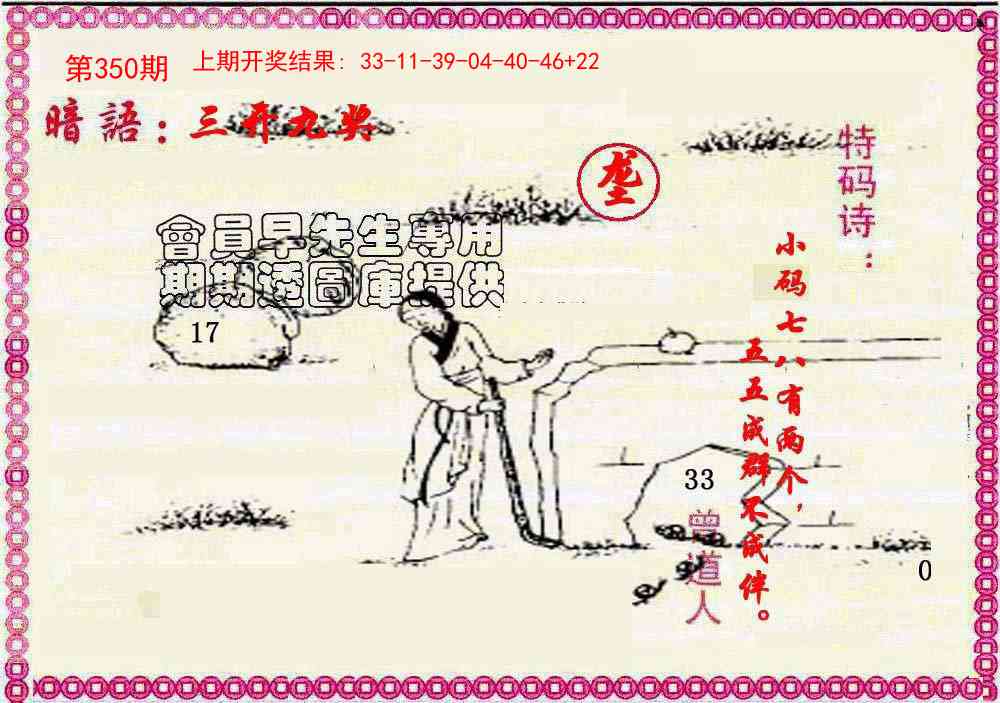 第350期
上期开奖结果: 33-11-39-04-40-46+22
暗語：三开九奖
垄
特码诗：
小码七八有两个，
五五成群不成伴。
曾道人
會員早先生專用
期期透圖庫提供
17
33
0